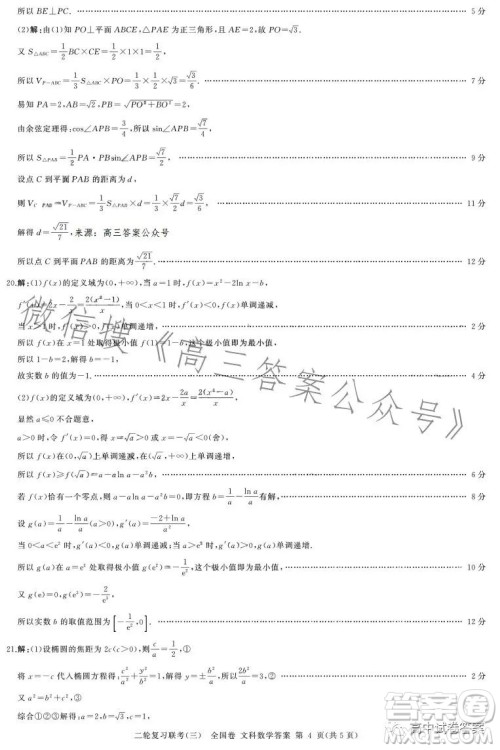 所以 BE⊥PC. 5 分
(2)解:由(1)知 PO⊥平面 ABCE,△PAE 为正三角形,且 AE=2,故 PO=√3.
又 S△ABC=1/2 BC×CE=1/2×1×1=1/2,
所以 V_{P-ABC}=1/3 S△ABC×PO=1/3×1/2×√3=√3/6. 7 分
易知 PA=2,AB=√2,PB=√(PO²+BO²)=2,
由余弦定理得:cos∠APB=3/4,所以 sin∠APB=√7/4,
所以 S△PAB=1/2 PA·PBsin∠APB=√7/2. 9 分
设点 C 到平面 PAB 的距离为 d,
则 V_{C-PAB}=V_{P-ABC}=1/3 S△PAB×d=1/3×√7/2 d=√3/6. 11 分
解得 d=√21/7, 来源:高三答案公众号
所以点 C 到平面 PAB 的距离为√21/7. 12 分
20.解:(1)f(x)的定义域为(0,+∞),当 a=1 时,f(x)=x²-2ln x-b,
f′(x)=2x-2/x=2(x²-1)/x,当 0<x<1 时,f(x)单调递减,
当 x>1 时,f(x)单调递增, 2 分
所以 f(x)在 x=1 处取得极小值 f(1)=1-b,这个极小值即为最小值,
所以 1-b=2,解得 b=-1,
故实数 b 的值为-1. 4 分
(2)f(x)的定义域为(0,+∞),f′(x)=2x-2a/x=2(x²-a)/x,
显然 a≤0 不合题意,
a>0 时,令 f′(x)=0,得 x=√a>0 或 x=-√a<0(舍),
所以 f(x)在(0,√a)上单调递减,在(√a,+∞)上单调递增,
所以 f(x)≥f(√a)=a-aln a-a²b, 6 分
若 f(x)恰有一个零点,则 a-aln a-a²b=0,即方程 b=1/a-ln a/a 有解, 8 分
设 g(a)=1/a-ln a/a(a>0),g′(a)=(-2+ln a)/a²,
当 0<a<e² 时,g′(a)<0,g(a)单调递减;当 a>e² 时,g′(a)>0,g(a)单调递增,
所以 g(a)在 a=e² 处取得极小值 g(e²)=-1/e²,这个极小值即为最小值, 10 分
又 g(e)=0,
所以实数 b 的取值范围为[-1/e²,0]. 12 分
21.解:(1)设椭圆的焦距为 2c(c>0),则c/a=1/2,①
将 x=-c 代入椭圆方程得:c²/a²+y²/b²=1,解得 y=±b²/a,所以b²/a=3/2,② 2 分
又 a²=b²+c²,③
综合①②③解得:
二轮复习联考(三) 全国卷 文科数学答案 第 4 页(共 5 页)
微信搜《高三答案公众号》
高中试卷答案